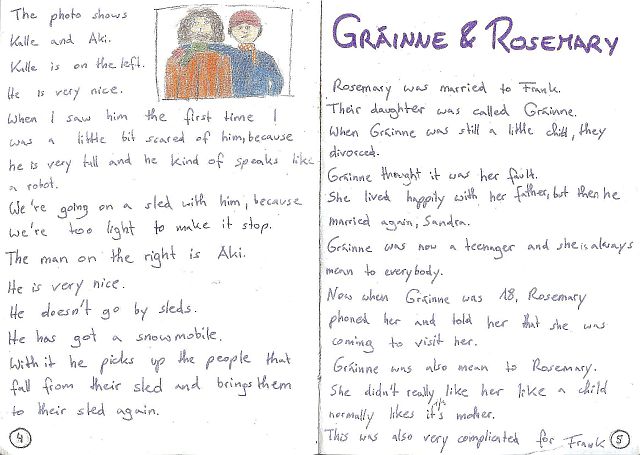 The photo shows
Kalle and Aki.
Kalle is on the left.
He is very nice.
When I saw him the first time I
was a little bit scared of him, because
he is very tall and he kind of speaks like
a robot.
We're going on a sled with him, because
we're too light to make it stop.
The man on the right is Aki.
He is very nice.
He doesn't go by sleds.
He has got a snowmobile.
With it he picks up the people that
fall from their sled and brings them
to their sled again.
4
GRÁINNE & ROSEMARY
Rosemary was married to Frank.
Their daughter was called Gráinne.
When Gráinne was still a little child, they
divorced.
Gráinne thought it was her fault.
She lived happily with her father, but then he
married again, Sandra.
Gráinne was now a teenager and she is always
mean to everybody.
Now when Gráinne was 18, Rosemary
phoned her and told her that she was
coming to visit her.
Gráinne was also mean to Rosemary.
She didn't really like her like a child
normally likes it's mother.
This was also very complicated for Frank
5